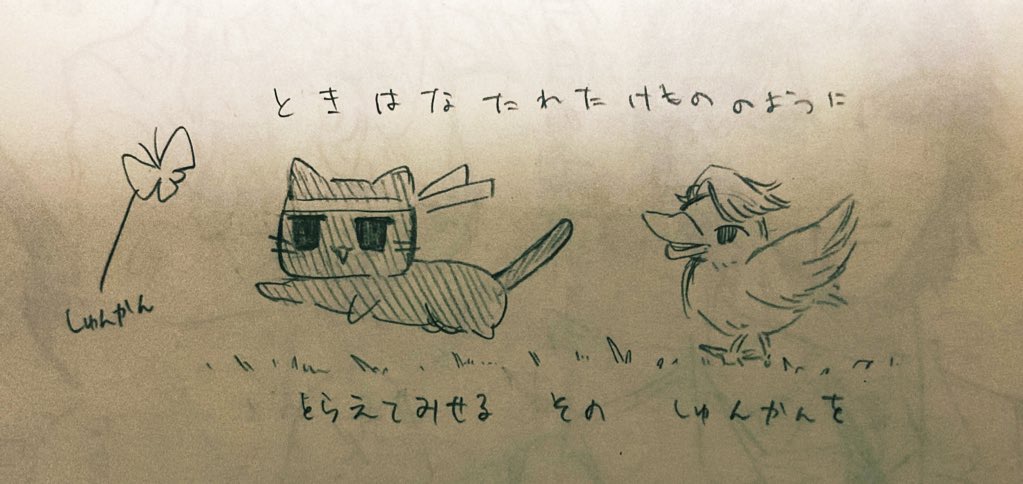 ときはなたれたけもののように
しゅんかん
とらえてみせる その しゅんかんを